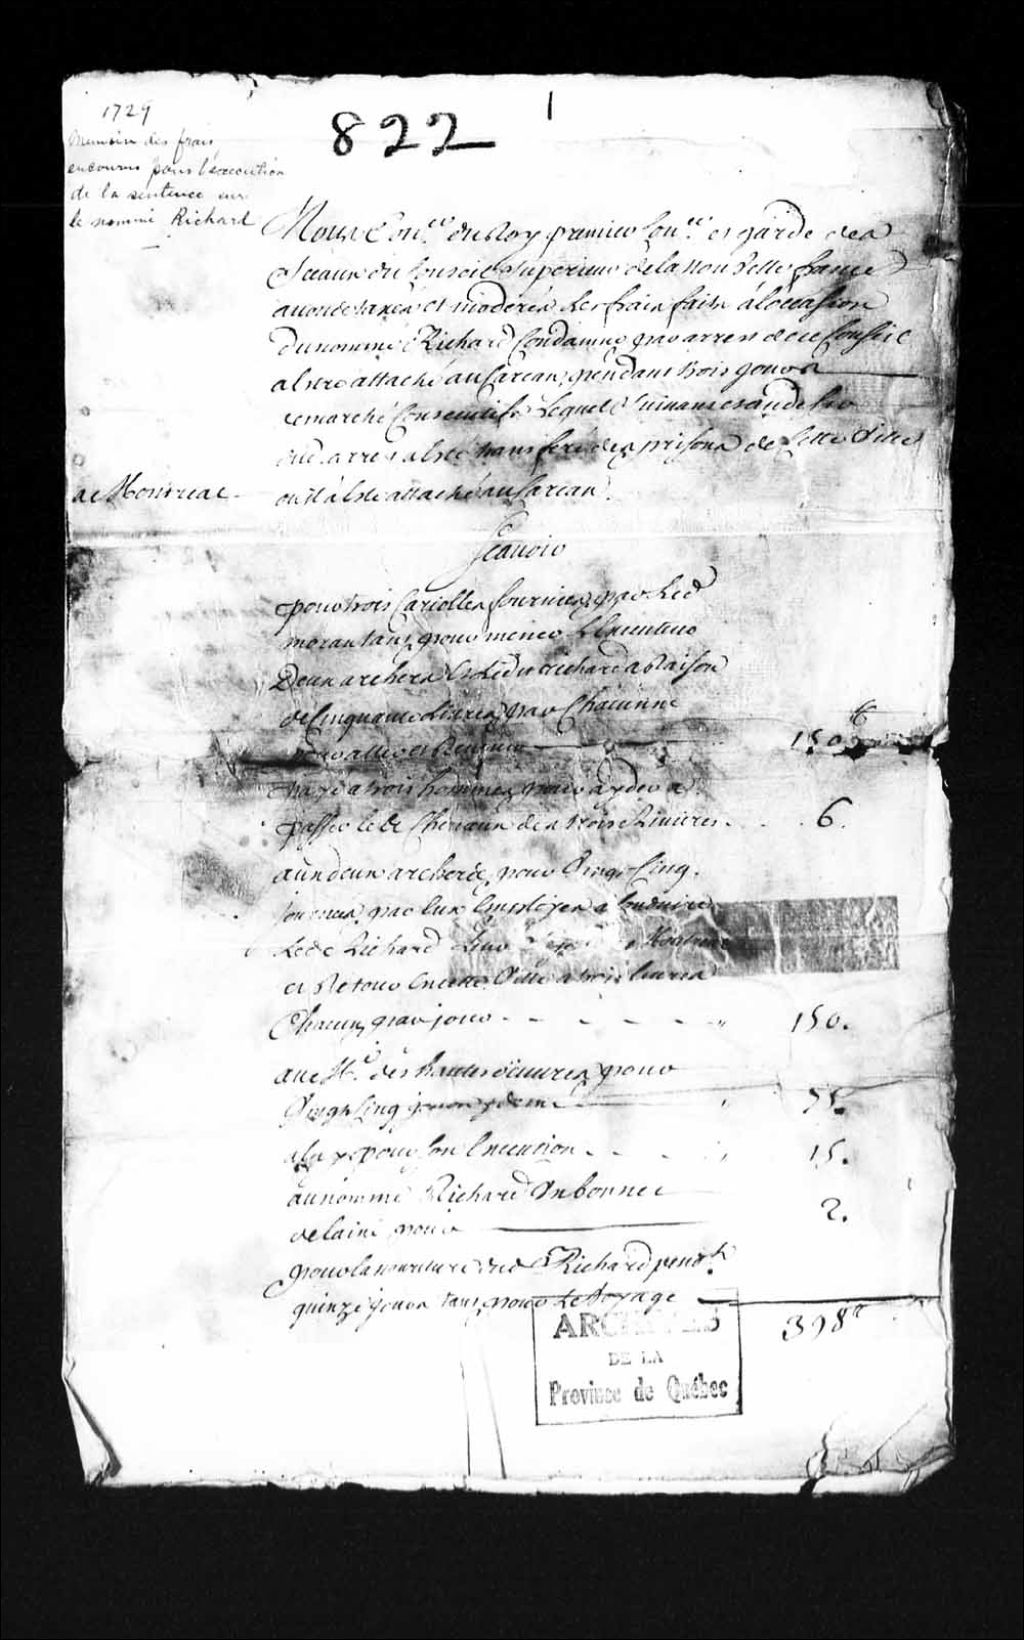 1
1729
822
Memoire des frais
encourus pour l'execution
de la sentence sur
le nommé Richard
Nous Con.er du Roy premier Con.er et garde des
Sceaux du Conseil Superieur de la Nouvelle france
avons taxés et moderés les frais faits à l'occasion
du nommé Richard Condamné par arrest de ce Conseil
a estre attaché au Carcan, pendant trois jours
de marché Consecutifs Lequel
dud. arrest a esté transferé des prisons de Cette Ville
de Montreal
ou il à esté attaché au Carcan.
Scavoir
pour trois Carioles fournies par Led
morantans pour mener L'Executeur
Deux archers Et Ledit richard a Raison
de Cinquante Livres par Chacunne
pour aller et Revenir 150
payé a trois hommes pour ayder a
passer le de Chenaux des trois Rivieres 6.
aux deux archers, pour Vingt Cinq
journées par Eux Employés a Conduire
Led Richard Montreal
et Retour en cette Ville a trois livres
Chacun par jour 150.
au M.e des hautes oeuvres pour
Vingt Cinq jours 75.
a luy pour son Execution 15.
au nommé Richard Un bonnet
de laine pour 2.
pour la nouriture dud Richard pend.t
quinze jours tant pour Le Voyage
398
ARCHIVES
DE LA
Province de Québec